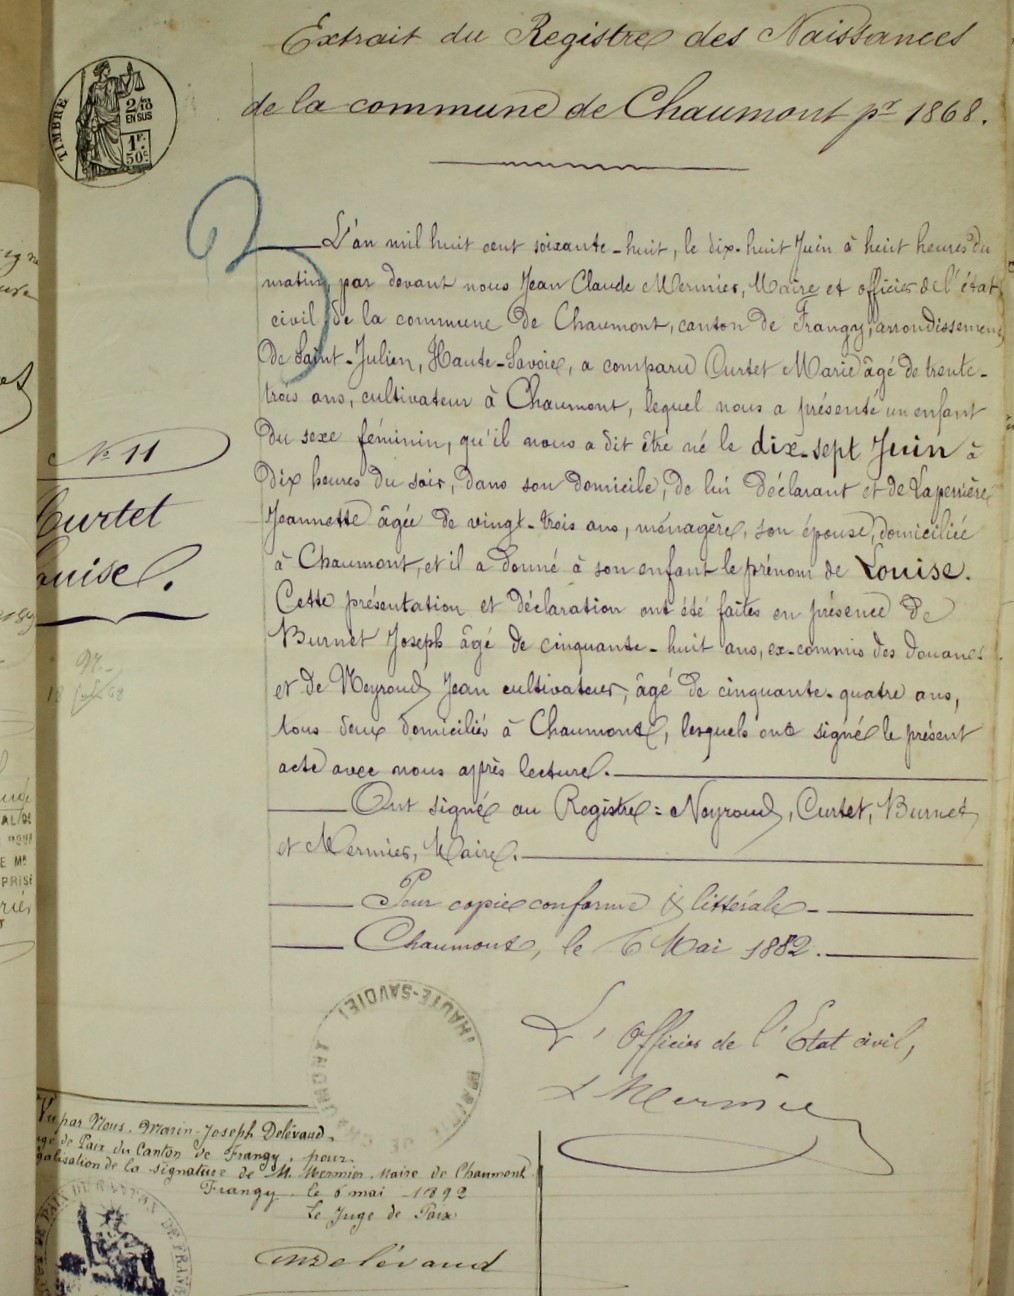 Extrait du Registre des Naissances
de la commune de Chaumont pr 1868.
TIMBRE
2/10
EN SUS
1F.
50c
L'an mil huit cent soixante-huit, le dix-huit Juin à huit heures du
matin, par devant nous Jean Claude Mermier, Maire et officier de l'état
civil de la commune de Chaumont, canton de Frangy, arrondissement
de Saint-Julien, Haute-Savoie, a comparu Curtet Marie âgé de trente-
trois ans, cultivateur à Chaumont, lequel nous a présenté un enfant
du sexe féminin, qu'il nous a dit être né le dix-sept Juin à
dix heures du soir, dans son domicile, de lui déclarant et de Laperrière
Jeannette âgée de vingt-trois ans, ménagère, son épouse, domiciliée
à Chaumont, et il a donné à son enfant le prénom de Louise.
Cette présentation et déclaration ont été faites en présence de
Burnet Joseph âgé de cinquante-huit ans, ex-commis des douanes
et de Neyroud Jean cultivateur, âgé de cinquante-quatre ans,
tous deux domiciliés à Chaumont, lesquels ont signé le présent
acte avec nous après lecture.
Ont signé au Registre: Neyroud, Curtet, Burnet
et Mermier, Maire.
Pour copie conforme & littérale
Chaumont, le 6 Mai 1892.
L'Officier de l'Etat civil,
Mermier
No 11
Curtet
Louise.
MAIRIE DE CHAUMONT
(HAUTE-SAVOIE)
Vu par Nous, Marin-Joseph Delévaud,
Juge de Paix du Canton de Frangy, pour
légalisation de la signature de M. Mermier, Maire de Chaumont
Frangy le 6 mai 1892
Le Juge de Paix
Delévaud
DE PAIX DU CANTON DE FRANG